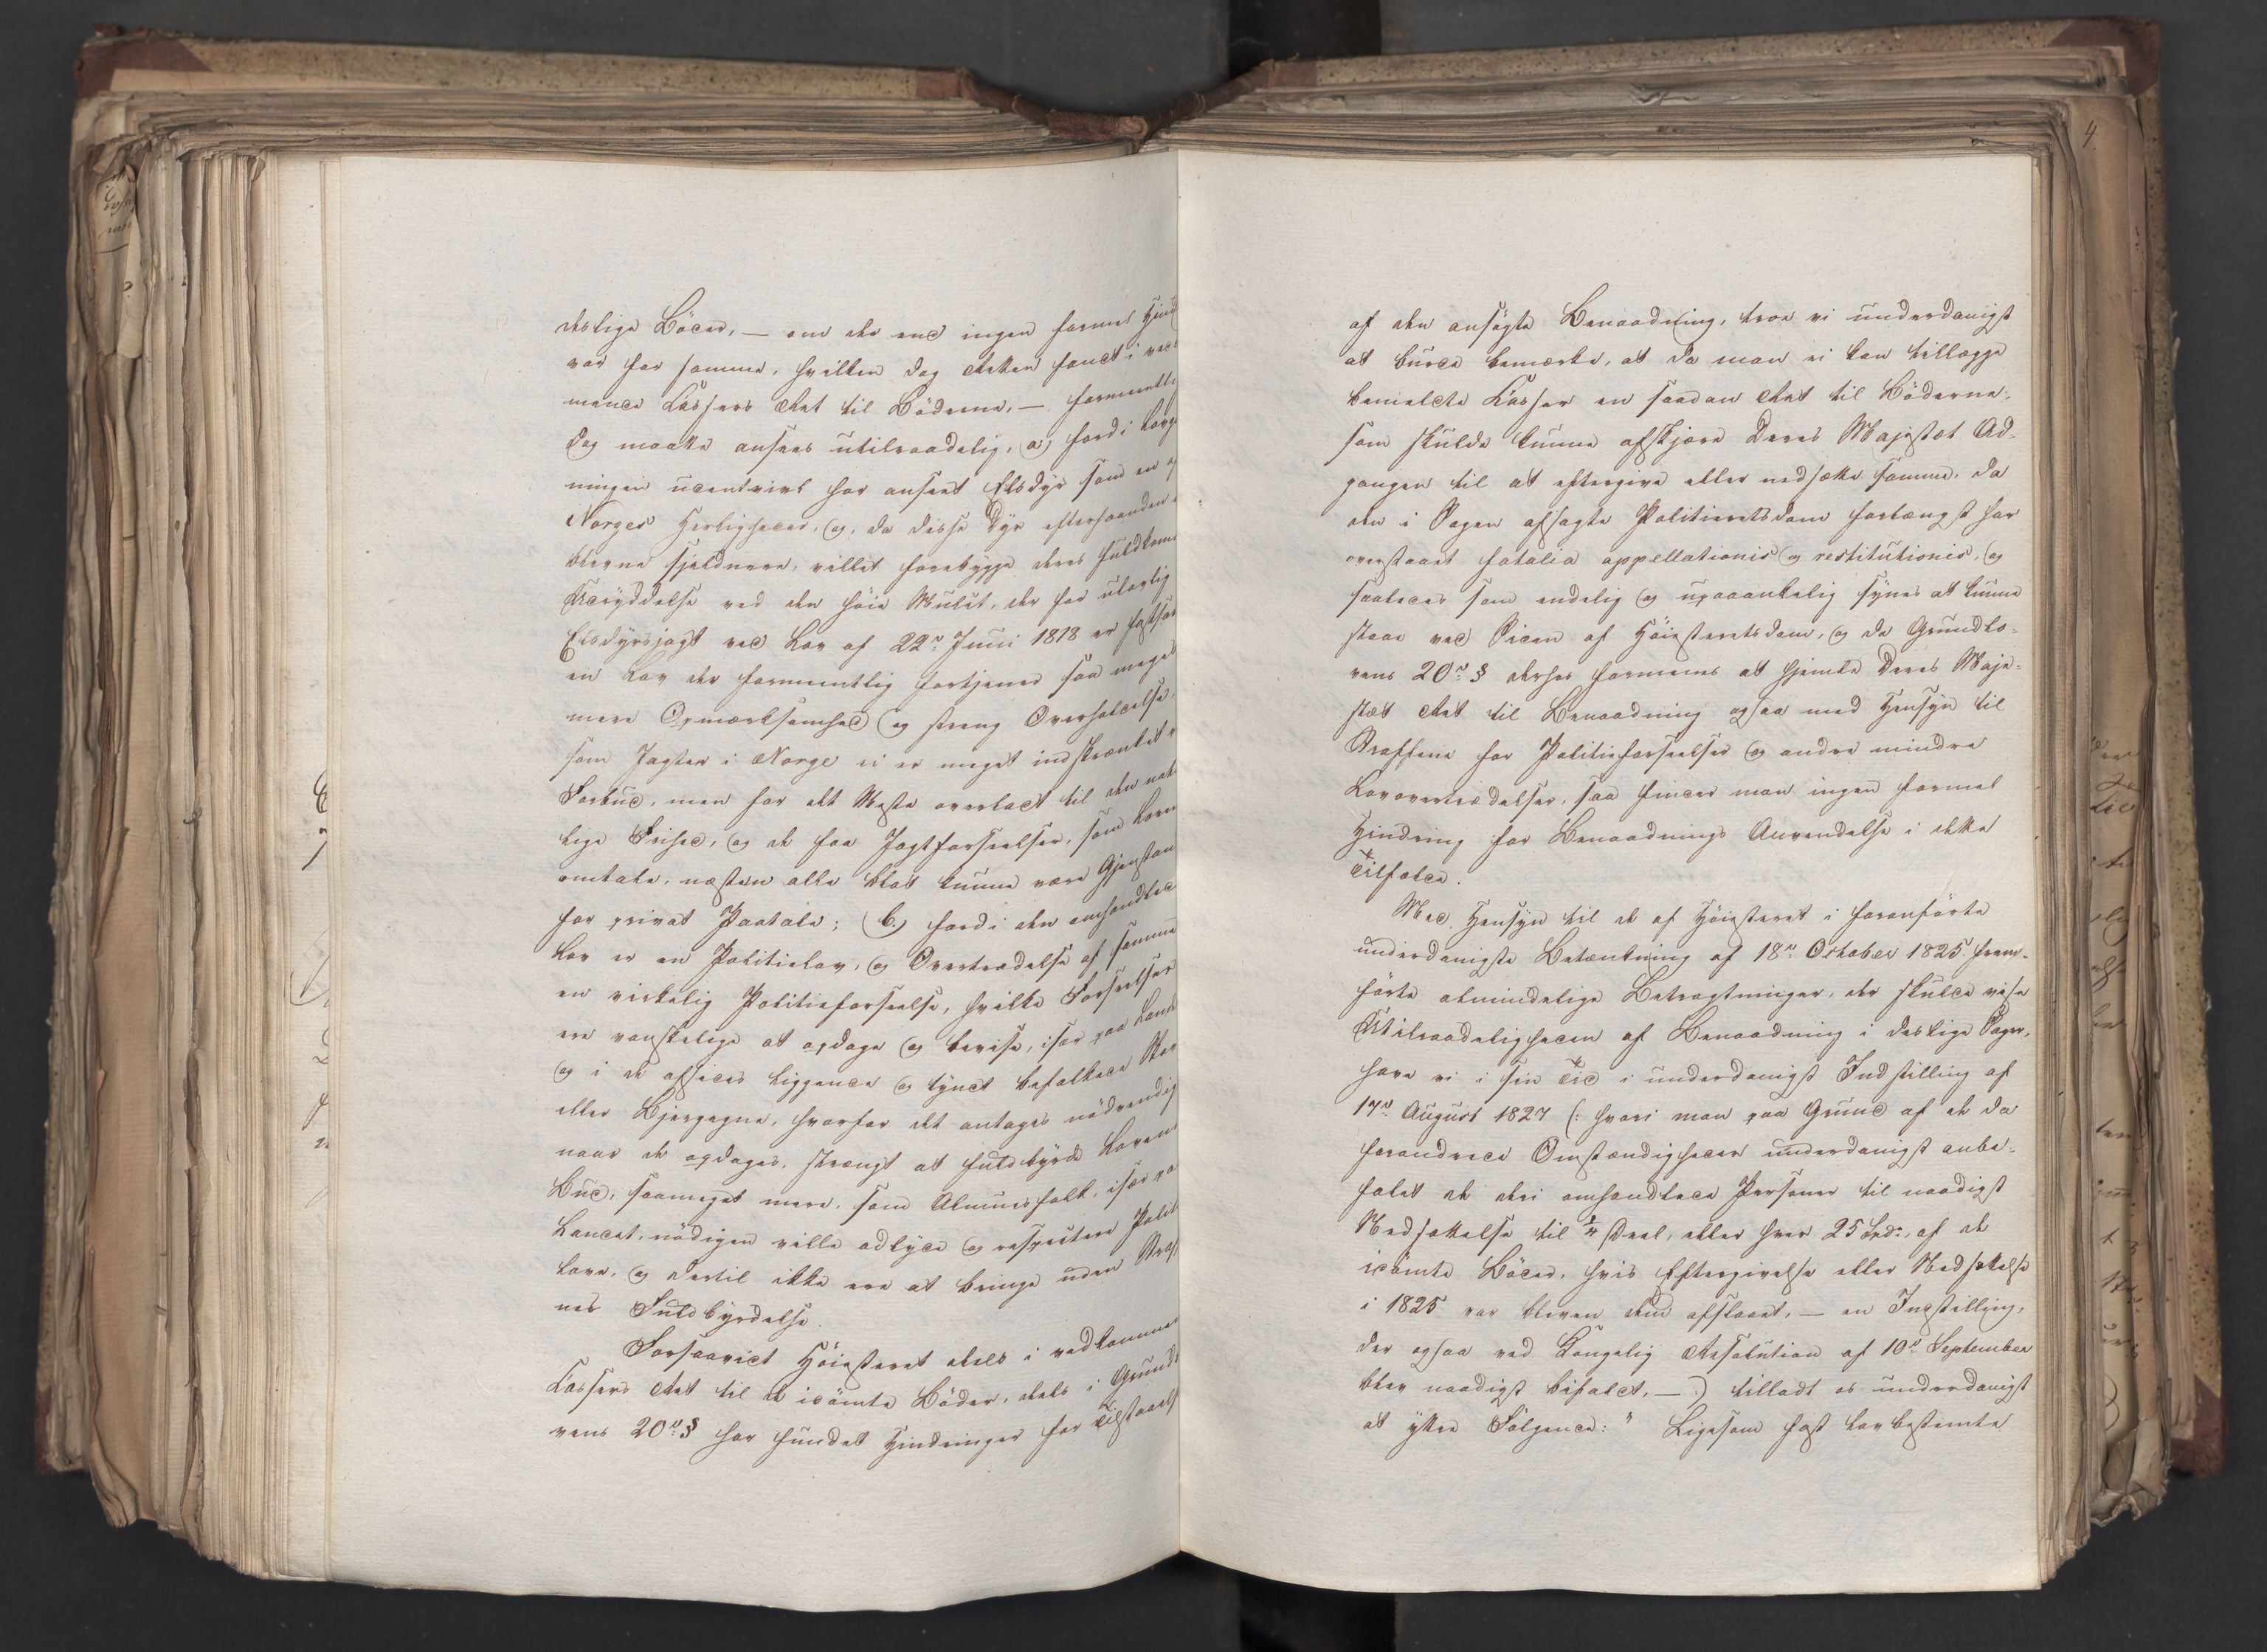 deslige Böder, — om der end ingen formel Hind
var for samme, hvilken dog Retten fandt i ved
mende Cassers Ret til Böderne, — formeentli
dog maatte ansees utilraadelig, a) fordi Lovgi
ningen udentvivl har anseet Elsdyr som en af
Norges Herligheder, og, da disse Dyr efterhaanden
blevne sjeldnere, villet forebygge deres fuldkom
Udryddelse ved den höie Mulct, der for ulovlig
Elsdyrsjagt ved Lov af 22de Juni 1818 er fastsat
en Lov der formeentlig fortjener saa meget
mere Opmærksomhed og streng Overholdelse,
som Jagten i Norge ei er meget indskrænket v
Forbud, men for det Meste overladt til den natu
lige Frihed, og de faa Jagtforseelser, som Loven
omtale, næsten alle blot kunne være Gjenstan
for privat Paatale; b.) fordi den omhandlede
Lov er en Politielov, og Overtrædelse af samme
en virkelig Politieforseelse, hvilke Forseelser
ere vanskelige at opdage og bevise, især paa Lande
og i de afsides liggende og tyndt befolkede Skov
eller Bjergegne, hvorfor det antages nödvendig
naar de opdages, strengt at fuldbyrde Lovens
Bud, saameget mere, som Almuesfolk, især pa
Landet, nödigen ville adlyde og respectere Politi
love, og dertil ikke ere at bringe uden Straf
nes Fuldbyrdelse.
Forsaavidt Höiesteret deels i vedkommen
Cassers Ret til de idömte Böder, deels i Grundlo
vens 20de § har fundet Hindringer for Tilstaaels
4
af den ansögte Benaadning, troe vi underdanigst
at burde bemærke, at da man ei kan tillægge
bemeldte Casser en saadan Ret til Böderne,
som skulde kunne afskjære Deres Majestæt Ad-
gangen til at eftergive eller nedsætte samme, da
den i Sagen afsagte Politieretsdom forlængst har
oversaaet fatalia appellationis og restitutionis, og
saaledes som endelig og upaaankelig synes at kunne
staae ved Siden af Höiesteretsdom, og da Grundlo-
vens 20de § derhos formenes at hjemle Deres Maje-
stæt Ret til Benaadning ogsaa med Hensyn til
Straffene for Politieforseelser og andre mindre
Lovovertrædelser, saa finder man ingen formel
Hindring for Benaadnings Anvendelse i dette
Tilfælde.
Med Hensyn til de af Höiesteret i foranförte
underdanigste Betænkning af 18de October 1825 frem-
förte almindelige Betragtninger, der skulde vise
Utilraadeligheden af Benaadning i deslige Sager,
have vi i sin Tid i underdanigst Indstilling af
17de August 1827 (: hvori man paa Grund af de da
forandrede Omstændigheder underdanigst anbe-
falet de deri omhandlede Personer til naadigst
Nedsættelse til ¼ Deel, eller hver 25 Spd:, af de
idömte Böder, hvis Eftergivelse eller Nedsættelse
i 1825 var bleven dem afslaaet, — en Indstilling,
der ogsaa ved Kongelig Resolution af 10de September
blev naadigst bifaldt, — :) tilladt os underdanigst
at yttre Fölgende: " Ligesom fast lovbestemte